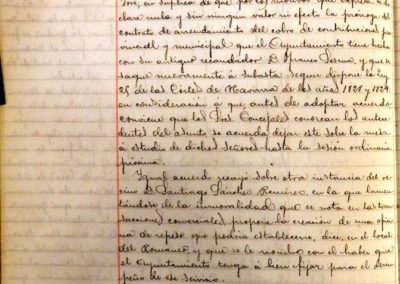 sore, en suplica de que por los motivos que expresa, se de-
clare nula y sin ningun valor ni efecto la próroga del
contrato de arrendamiento del cobro de contribuciones pro-
vincial y municipal que el Ayuntamiento tiene hecho
con su antiguo recaudador D. y que se
saque nuevamente á subasta segun dispone la Ley
25 de las Córtes de Navarra de los años 1828 y 1829
en consideración á que, antes de adoptar acuerdo
conviene que los Sres. Concejales conozcan los antece-
dentes del asunto se acuerda dejar este sobre la mesa
á estudio de dichos señores hasta la sesión ordinaria
próxima.
Igual acuerdo recayó sobre otra instancia del ve-
cino D. Santiago Sánchez Ramirez, en la que lamen-
tándose de la inmoralidad que se nota en las tran-
sacciones comerciales, propone la creación de una ofici-
na de repeso que podria establecerse, dice, en el local
del Romaneo, y que se le nombre con el haber que
el Ayuntamiento tenga á bien fijar para el desem-
peño de ese servicio.